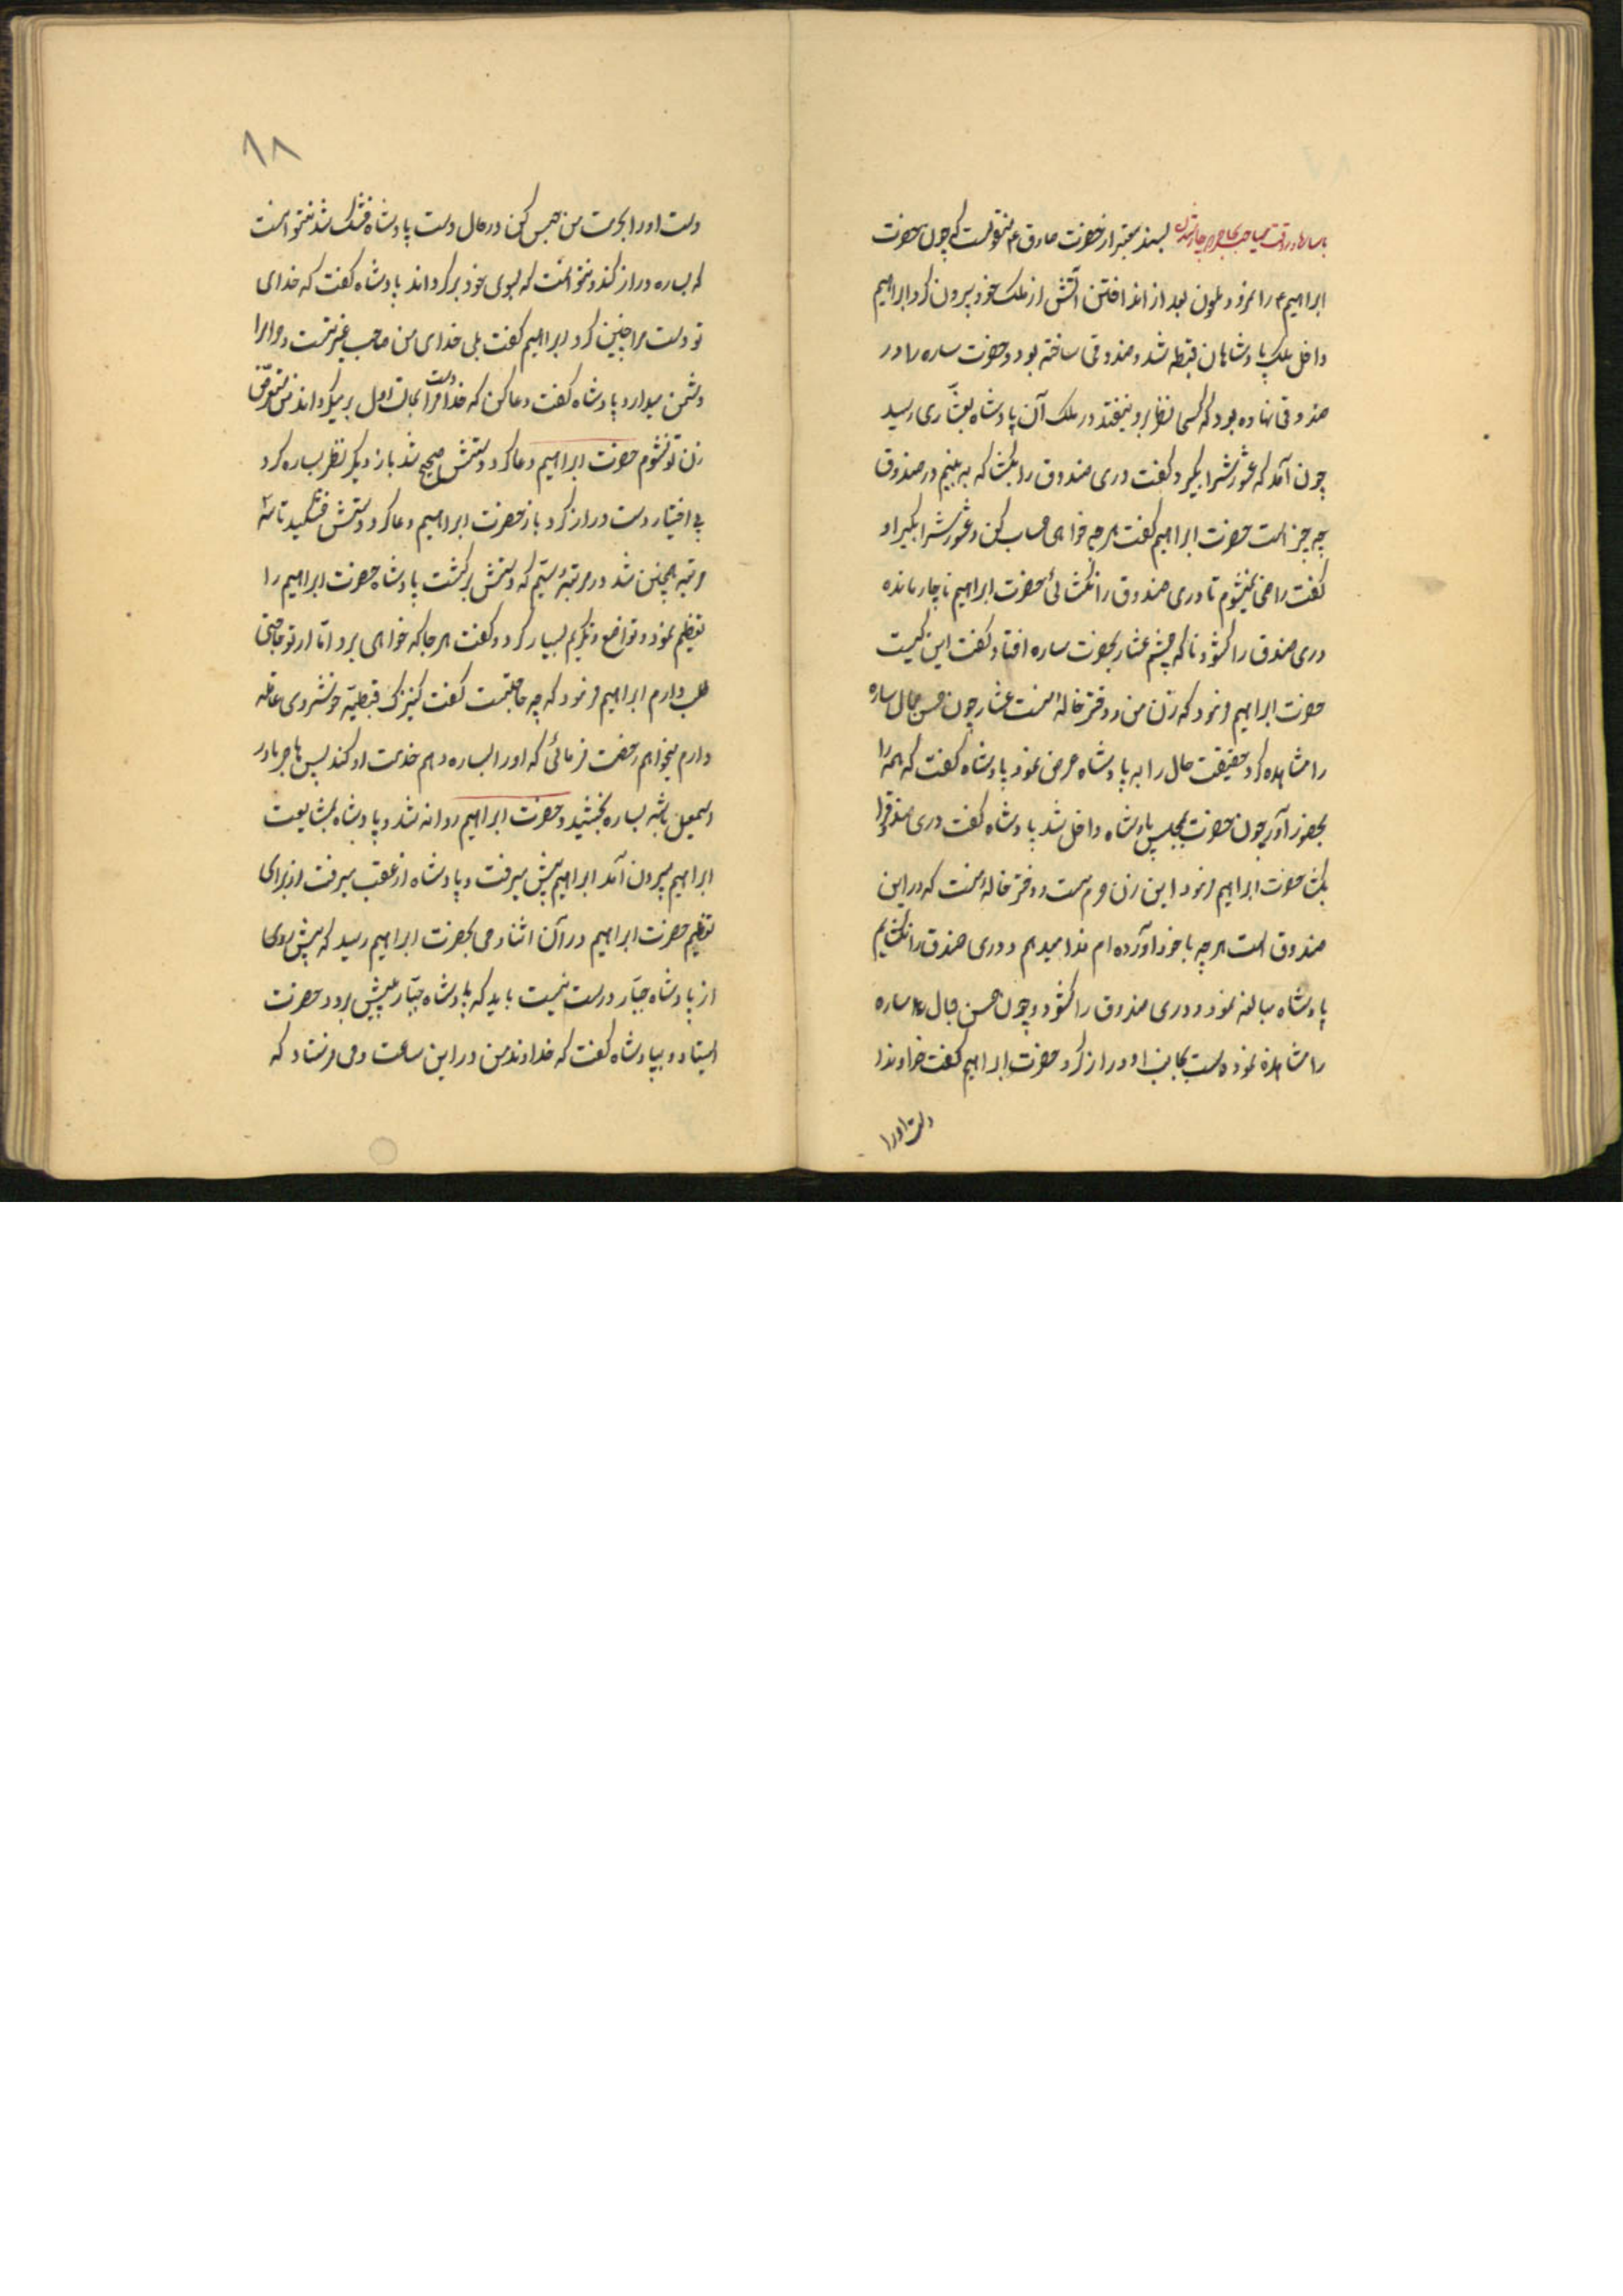 بسند معتبر از حضرت صادق ع منقولست که چون حضرت
ابراهیم ع را نمرود ملعون بعد از انداختن آتش از ملک خود بیرون کرد ابراهیم
داخل ملک پادشاهان قبطه شد و صندوقی ساخته بود و حضرت ساره را در
صندوقی نهاده بود که کسی نظر برو نیفتد در ملک آن پادشاه بعشّاری رسید
چون آمد که عشورش را بگیرد گفت دری صندوق را بگشا که به بینم در صندوق
چه چیز است حضرت ابراهیم گفت هر چه خواهی حساب کن و عشورش را بگیر او
گفت راضی نمیشوم تا دری صندوق را نگشائی حضرت ابراهیم ناچار مانده
دری صندق را گشود ناگه چشم عشار بحضرت ساره افتاد گفت این کیست
حضرت ابراهیم فرمود که زن من و دختر خالهٔ منست عشار چون حسن جمال ساره
را مشاهده کرد حقیقت حال را به پادشاه عرض نمود پادشاه گفت که همه را
بحضور آور چون حضرت بمجلس پادشاه داخل شد پادشاه گفت دری صندوقرا
بگشا حضرت ابراهیم فرمود این زن حرمست و دختر خالهٔ منست که در این
صندوق است هر چه با خود آورده ام فدا میدهم و دری صندق را نگشایم
پادشاه مبالغه نمود و دری صندوق را گشود و چون حسن جمال ساره
را مشاهده نموده دست بجانب او دراز کرد حضرت ابراهیم گفت خداوندا
دست او را
۱۸
دست او را بحرمت من حبس کن در حال دست پادشاه خشک شد نتوانست
که بساره دراز کند و نتوانست که بسوی خود برگرداند پادشاه گفت که خدای
تو دست مرا چنین کرد ابراهیم گفت بلی خدای من صاحب غیرتست و حرام را
دشمن میدارد پادشاه گفت دعا کن که خدا دست مرا بحالت اول برمیگرداند من متعرّض
زن تو نشوم حضرت ابراهیم دعا کرد دستش صحیح شد باز دیگر نظر بساره کرد
بی اختیار دست دراز کرد باز حضرت ابراهیم دعا کرد دستش خشکید تا سه
مرتبه همچنین شد در مرتبهٔ سیّم که دستش برگشت پادشاه حضرت ابراهیم را
تعظیم نمود و تواضع و تکریم بسیار کرد و گفت هر جا که خواهی برو امّا از تو حاجتی
طلب دارم ابراهیم فرمود که چه حاجتست گفت کنیزک قبطیّه خوشروی عاقله
دارم میخواهم رخصت فرمائی که او را بساره دهم خدمت او کند پس هاجر مادر
اسمعیل باشد بساره بخشید و حضرت ابراهیم روانه شد و پادشاه بمشایعت
ابراهیم بیرون آمد ابراهیم پیش میرفت و پادشاه از عقب میرفت از برای
تعظیم حضرت ابراهیم در آن اثنا وحی بحضرت ابراهیم رسید که پیش روی
از پادشاه جبّار درست نیست باید که پادشاه جبّار بپیش برود حضرت
ایستاد و بپادشاه گفت که خداوند من در این ساعت وحی فرستاد که